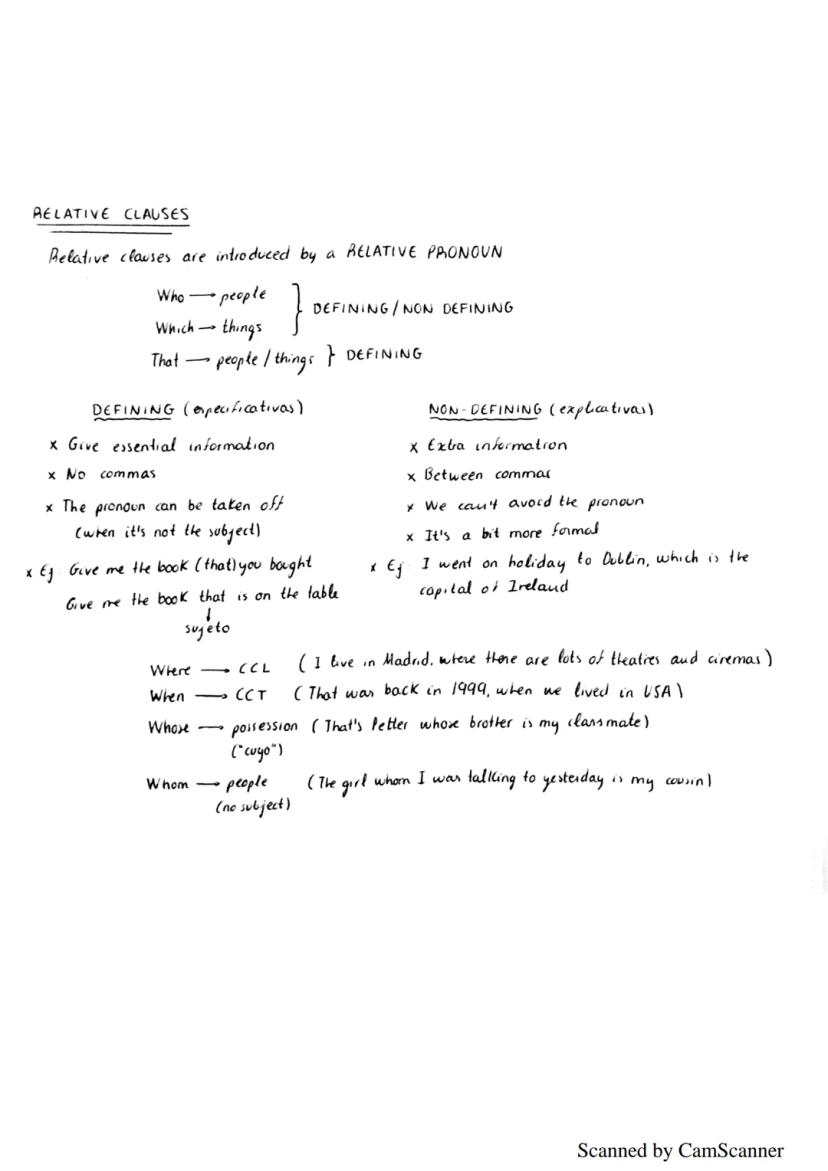 RELATIVE CLAUSES
Relative clauses are introduced by a RELATIVE PRONOUN
Who → people
Which → things
} DEFINING / NON DEFINING
That → people / things } DEFINING
DEFINING (especificativas)
x Give essential information
x No commas
x The pronoun can be taken off
(when it's not the subject)
x Ej: Give me the book (that) you bought
Give me the book that is on the table
↓
sujeto
NON-DEFINING (explicativas)
x Extra information
x Between commas
x We can't avoid the pronoun
x It's a bit more formal
x Ej: I went on holiday to Dublin, which is the
capital of Ireland
Where → CCL (I live in Madrid, where there are lots of theatres and cinemas)
When → CCT (That was back in 1999, when we lived in USA)
Whose → possession (That's Petter whose brother is my classmate)
("cuyo")
Whom → people (The girl whom I was talking to yesterday is my cousin)
(no subject)
Scanned by CamScanner